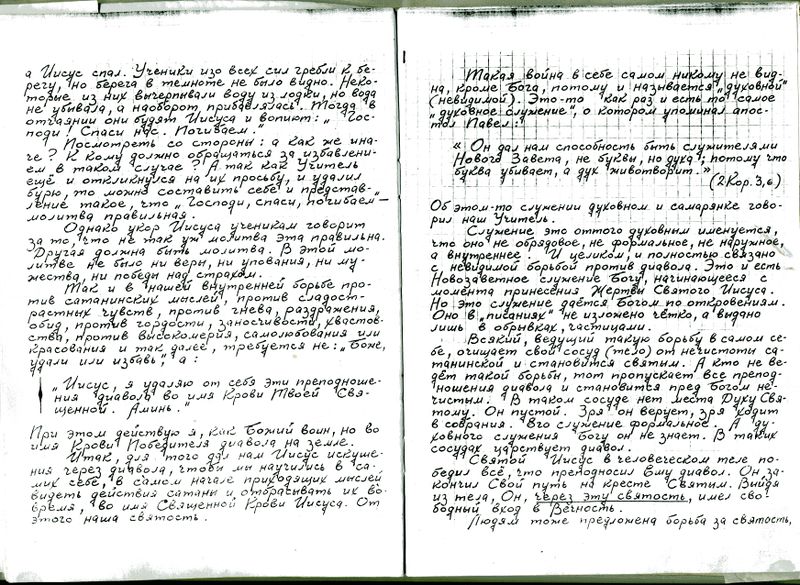 а Иисус спал. Ученики изо всех сил гребли к бе-
регу, но берега в темноте не было видно. Неко-
торые из них вычерпывали воду из лодки, но вода
не убывала, а наоборот, прибавлялась. Тогда в
отчаянии они будят Иисуса и вопиют: „ Гос-
поди! Спаси нас. Погибаем."
Посмотреть со стороны: а как же ина-
че? К кому должно обращаться за избавлени-
ем в таком случае? А так как Учитель
ещё и откликнулся на их просьбу, и удалил
бурю, то можно составить себе и представ-
ление такое, что „Господи, спаси, погибаем" —
молитва правильная.
Однако укор Иисуса ученикам говорит
за то, что не так уж молитва эта правильна.
Другая должна быть молитва. В этой мо-
литве не было ни веры, ни упования, ни му-
жества, ни победы над страхом.
Так и в нашей внутренней борьбе про-
тив сатанинских мыслей, против сладост-
растных чувств, против гнева, раздражения,
обид, против гордости, заносчивости, хвастов-
ства, против высокомерия, самолюбования или
красования и так далее, требуется не: „Боже,
удали или избавь", а:
„Иисус, я удаляю от себя эти преподноше-
ния диавола во имя Крови Твоей Свя-
щенной. Аминь."
При этом действую я, как Божий воин, но во
имя Крови Победителя диавола на земле.
Итак, для того дал нам Иисус искуше-
ния через диавола, чтобы мы научились в са-
мих себе, в самом начале приходящих мыслей
видеть действия сатаны и отбрасывать их во-
время, во имя Священной Крови Иисуса. От
этого наша святость.
Такая война в себе самом никому не вид-
на, кроме Бога, потому и называется „духовной"
(невидимой). Это-то как раз и есть то самое
„духовное служение", о котором упоминал апос-
тол Павел:
« Он дал нам способность быть служителями
Нового Завета, не буквы, но духа; потому что
буква убивает, а дух животворит.»
(2 Кор. 3,6)
Об этом-то служении духовном и самарянке гово-
рил наш Учитель.
Служение это оттого духовным именуется,
что оно не обрядовое, не формальное, не наружное,
а внутреннее. И целиком, и полностью связано
с невидимой борьбой против диавола. Это и есть
Новозаветное служение Богу, начинающееся с
момента принесения Жертвы Святого Иисуса.
Но это служение даётся Богом по откровениям.
Оно в „писаниях" не изложено чётко, а выдано
лишь в обрывках, частицами.
Всякий, ведущий такую борьбу в самом се-
бе, очищает свой сосуд (тело) от нечистоты са-
танинской и становится святым. А кто не ве-
дёт такой борьбы, тот пропускает все препод-
ношения диавола и становится пред Богом не-
чистым. В таком сосуде нет места Духу Свя-
тому. Он пустой. Зря он верует, зря ходит
в собрания. Его служение формальное. А ду-
ховного служения Богу он не знает. В таких
сосудах царствует диавол.
Святой Иисус в человеческом теле по-
бедил всё, что преподносил Ему диавол. Он за-
кончил Свой путь на кресте Святым. Выйдя
из тела, Он, через эту святость, имел сво-
бодный вход в Вечность.
Людям тоже предложена борьба за святость,